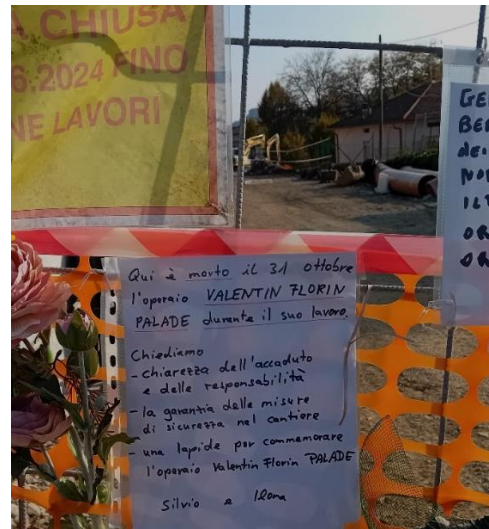 CHIUSA
6.2024 FINO
NE LAVORI
Qui è morto il 31 ottobre
l'operaio VALENTIN FLORIN
PALADE durante il suo lavoro.
Chiediamo
- chiarezza dell'accaduto
e delle responsabilità
- la garanzia delle misure
di sicurezza nel cantiere
- una lapide per commemorare
l'operaio Valentin Florin PALADE
Silvio e Ilona